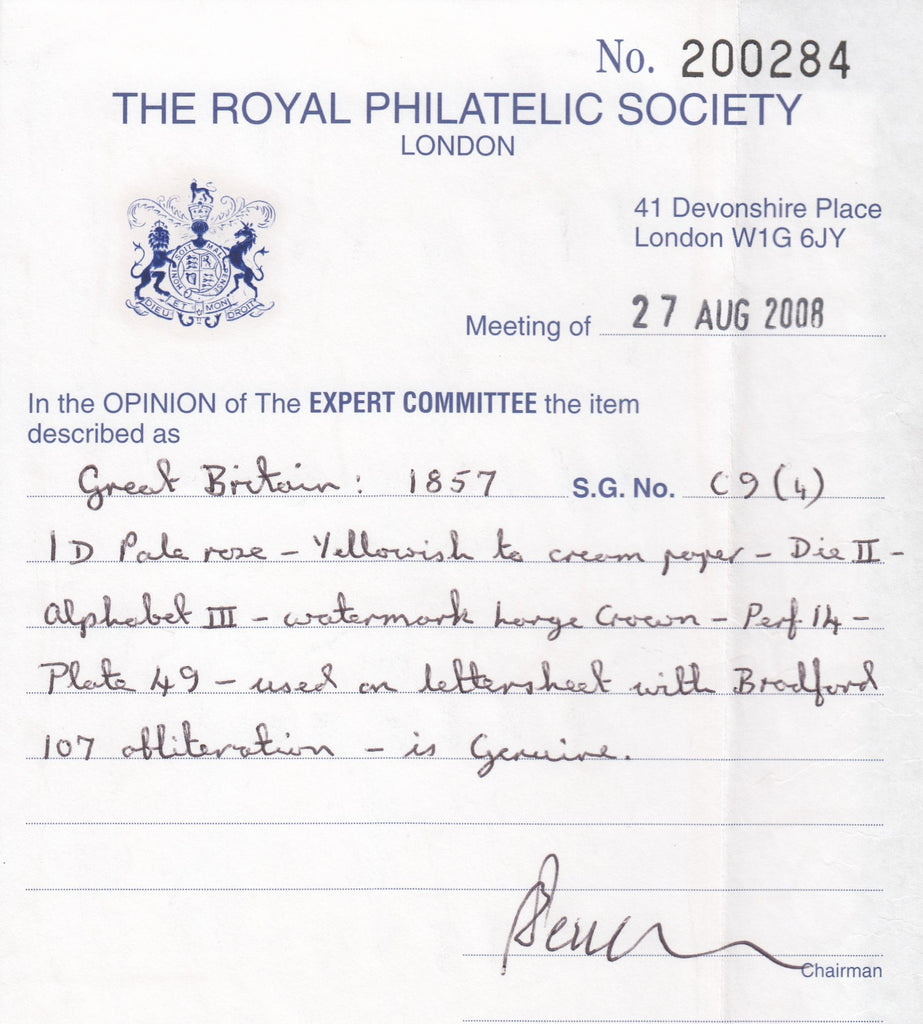 No. 200284
THE ROYAL PHILATELIC SOCIETY
LONDON
41 Devonshire Place
London W1G 6JY
HONI SOIT QUI MAL Y PENSE
DIEU ET MON DROIT
Meeting of 27 AUG 2008
In the OPINION of The EXPERT COMMITTEE the item
described as
Great Britain: 1857 S.G. No. C9(4)
1D Pale rose - Yellowish to cream paper - Die II -
Alphabet III - watermark Large Crown - Perf 14 -
Plate 49 - used on lettersheet with Bradford
107 obliteration - is Genuine.
Chairman